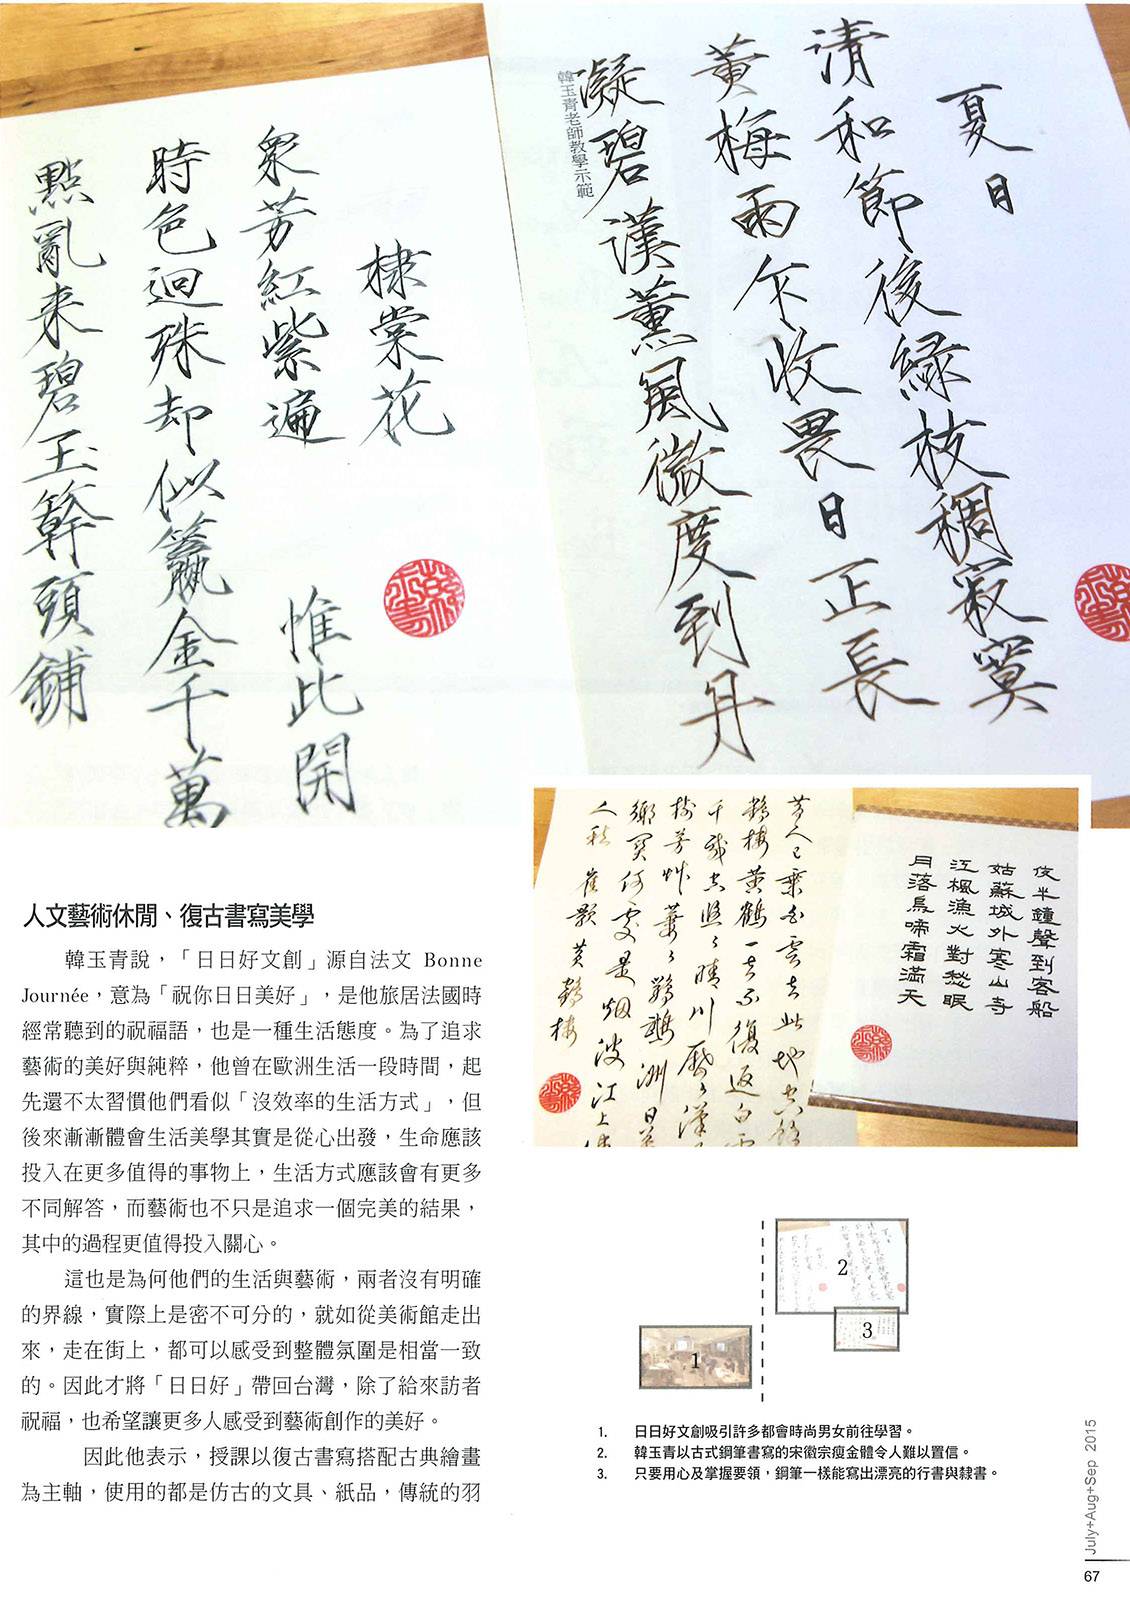 夏日
清和節後綠枝稠寂寞
黃梅雨乍收畏日正長
凝碧漢薰風微度到丹
韓玉青老師教學示範
棣棠花
眾芳紅紫遍 惟此開
時色迴殊却似籯金千萬
點亂来碧玉簳頭鋪
月落烏啼霜滿天
江楓漁火對愁眠
姑蘇城外寒山寺
夜半鐘聲到客船
昔人已乘白雲去此地空餘
鶴樓黃鶴一去不復返白雲
千載空悠〻晴川歷〻漢
樹芳艸萋〻鸚鵡洲日暮
鄉關何處是烟波江上使
人愁 崔顥 黃鶴樓
人文藝術休閒、復古書寫美學
韓玉青說，「日日好文創」源自法文 Bonne
Journée，意為「祝你日日美好」，是他旅居法國時
經常聽到的祝福語，也是一種生活態度。為了追求
藝術的美好與純粹，他曾在歐洲生活一段時間，起
先還不太習慣他們看似「沒效率的生活方式」，但
後來漸漸體會生活美學其實是從心出發，生命應該
投入在更多值得的事物上，生活方式應該會有更多
不同解答，而藝術也不只是追求一個完美的結果，
其中的過程更值得投入關心。
這也是為何他們的生活與藝術，兩者沒有明確
的界線，實際上是密不可分的，就如從美術館走出
來，走在街上，都可以感受到整體氛圍是相當一致
的。因此才將「日日好」帶回台灣，除了給來訪者
祝福，也希望讓更多人感受到藝術創作的美好。
因此他表示，授課以復古書寫搭配古典繪畫
為主軸，使用的都是仿古的文具、紙品，傳統的羽
1
2
3
1. 日日好文創吸引許多都會時尚男女前往學習。
2. 韓玉青以古式鋼筆書寫的宋徽宗瘦金體令人難以置信。
3. 只要用心及掌握要領，鋼筆一樣能寫出漂亮的行書與隸書。
July+Aug+Sep 2015
67